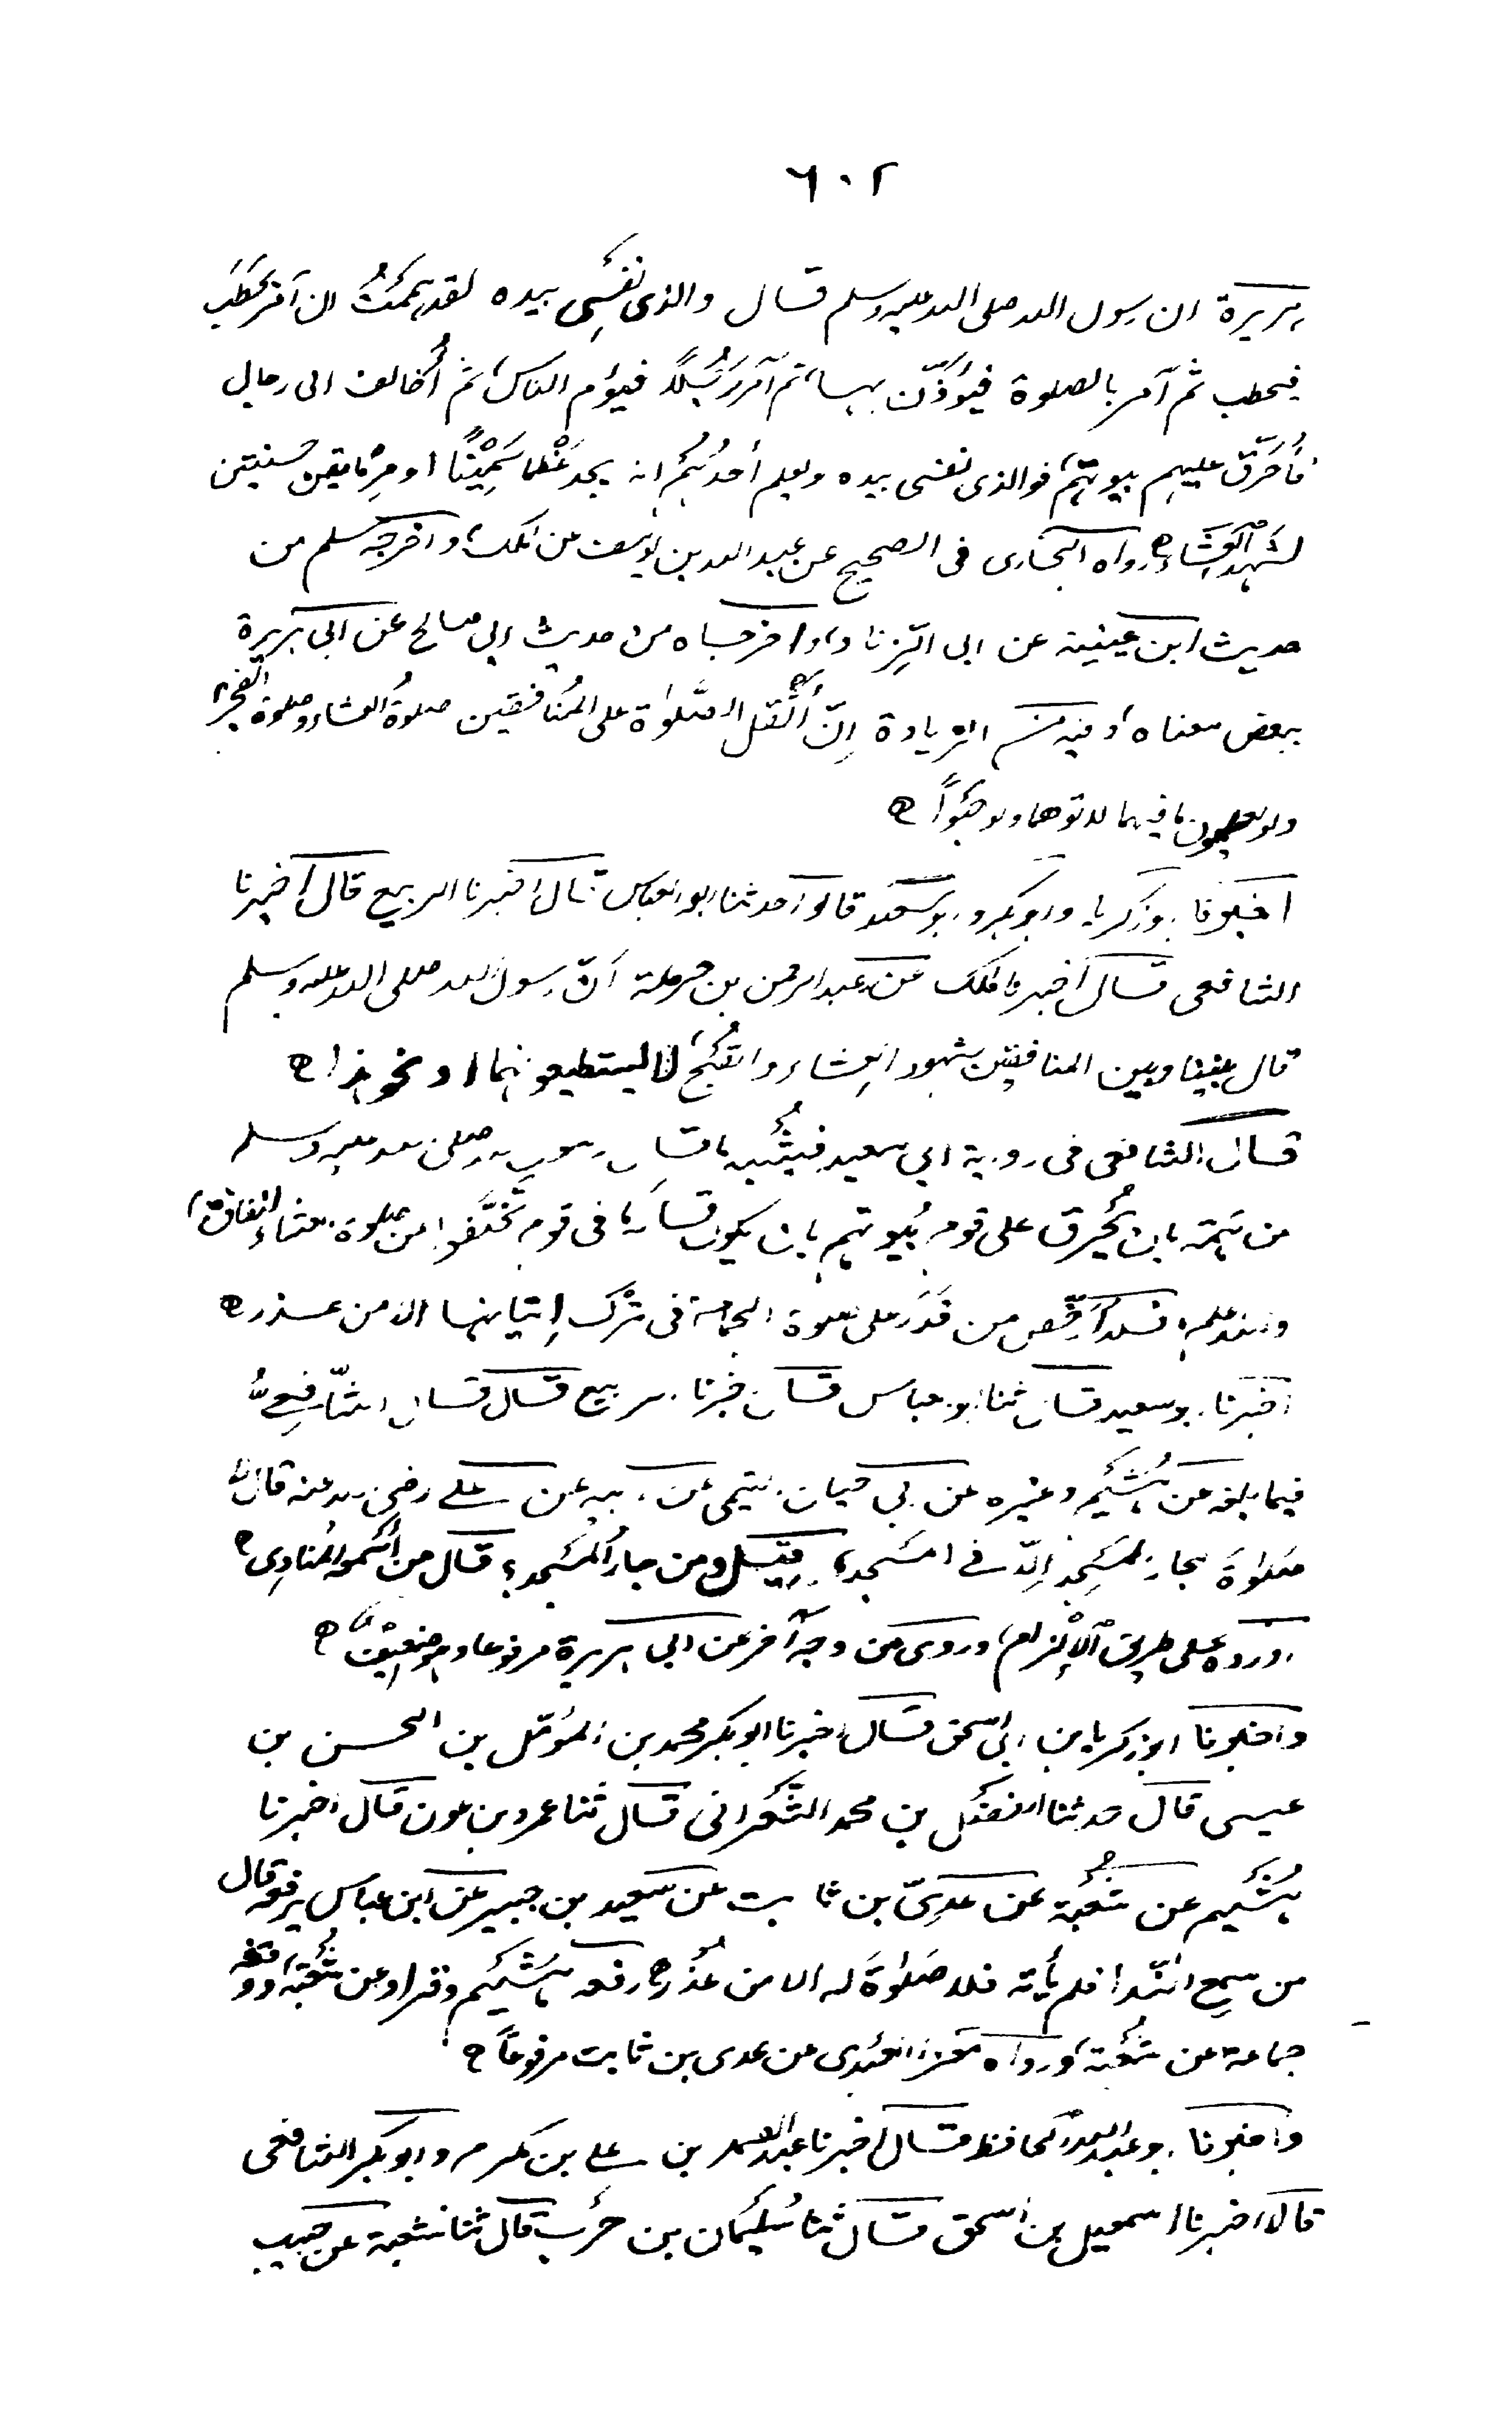 ٦٠٢
هريرة ان رسول الله صلى الله عليه وسلم قال والذى نفسى بيده لقد هممت ان آمر بحطب
فيحطب ثم آمر بالصلوة فيؤذن بها، ثم آمر رجلاً فيؤم الناس، ثم أخالف الى رجال
فأحرق عليهم بيوتهم، فوالذى نفسى بيده لو يعلم أحدهم انه يجد عظما سمينًا او مرماتين حسنتين
لشهد العشاء رواه البخارى فى الصحيح عن عبد الله بن يوسف عن ملك، واخرجه مسلم من
حديث ابن عيينة عن ابى الزناد، واخرجاه من حديث ابى صالح عن ابى هريرة
ببعض معناه، وفيه من الزيادة إنّ أثقل الصلوٰة على المنافقين صلوةُ العشاء وصلوة الفجر،
ولو يعلمون ما فيهما لاتوهما ولو حبوًا
اخبرنا ابو زكريا وابو بكر وابو سعيد قالوا حدثنا ابو العباس قال اخبرنا الربيع قال اخبرنا
الشافعى قال أخبرنا ملك عن عبد الرحمن بن حرملة أنّ رسول الله صلى الله عليه وسلم
قال بيننا وبين المنافقين شهود العشاء والصبح، لا يستطيعونهما او نحو هذا
قال الشافعى فى رواية ابى سعيد فيشبه ما قال رسول الله صلى الله عليه وسلم
من همّه بان يحرق على قوم بُيوتهم بان يكون قاله فى قوم تخلّفوا عن صلوة العشاء لنفاق،
والله اعلم، فلا أرخّص لمن قدَر على صلوة الجماعة فى ترك إتيانها الا من عذر
اخبرنا ابو سعيد قال ثنا ابو العباس قال اخبرنا الربيع قال قال الشّافِعىُّ
فيما بلغه عن هُشيم وغيره عن ابى حيان التيمى عن ابيه عن على رضى الله عنه قال لا
صَلوٰةَ لجار المَسْجِدِ إلّا فى المسجد، قيل ومن جارُ المَسْجد؟ قال من أسمعه المُنادِى
اورده على طريق الإلْزام، وروى من وجه آخر عن ابى هريرة مرفوعا وهو ضعيف
واخبرنا ابو زكريا بن ابى اسحق قال اخبرنا ابو بكر محمد بن المؤمّل بن الحسن بن
عيسى قال حدثنا الفضل بن محمد الشعرانى قال ثنا عمرو بن عون قال اخبرنا
هُشَيم عن شُعْبة عن عدىّ بن ثابت عن سعيد بن جبير عن ابن عباس يرفعه قال
من سمع النّدا فلم يأته فلا صَلوٰةَ له الا من عُذْر رفعه هشيم وقراد عن شُعْبة، ووقفه
جماعة عن شُعْبة، ورواه مَغراء العَبْدى عن عدى بن ثابت مرفوعًا
واخبرنا ابو عبد الله الحافظ قال اخبرنا عبد الصمد بن على بن مكرم وابو بكر الشافعى
قالا اخبرنا اسمعيل بن اسحق قال ثنا سُليمان بن حرْب قال ثنا شعبة عن حبيب